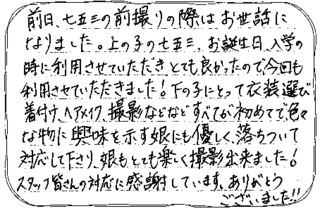 前日、七五三の前撮りの際はお世話に
なりました。上の子の七五三、お誕生日、入学の
時に利用させていただきとても良かったので、今回も
利用させていただきました！下の子にとって衣装選び
着付け、ヘアメイク、撮影などなどすべてが初めてで、色々
な物に興味を示す娘にも優しく、落ちついて
対応して下さり、娘もとても楽しく撮影出来ました！
スタッフ皆さんの対応に感謝しています。ありがとう
ございました！！